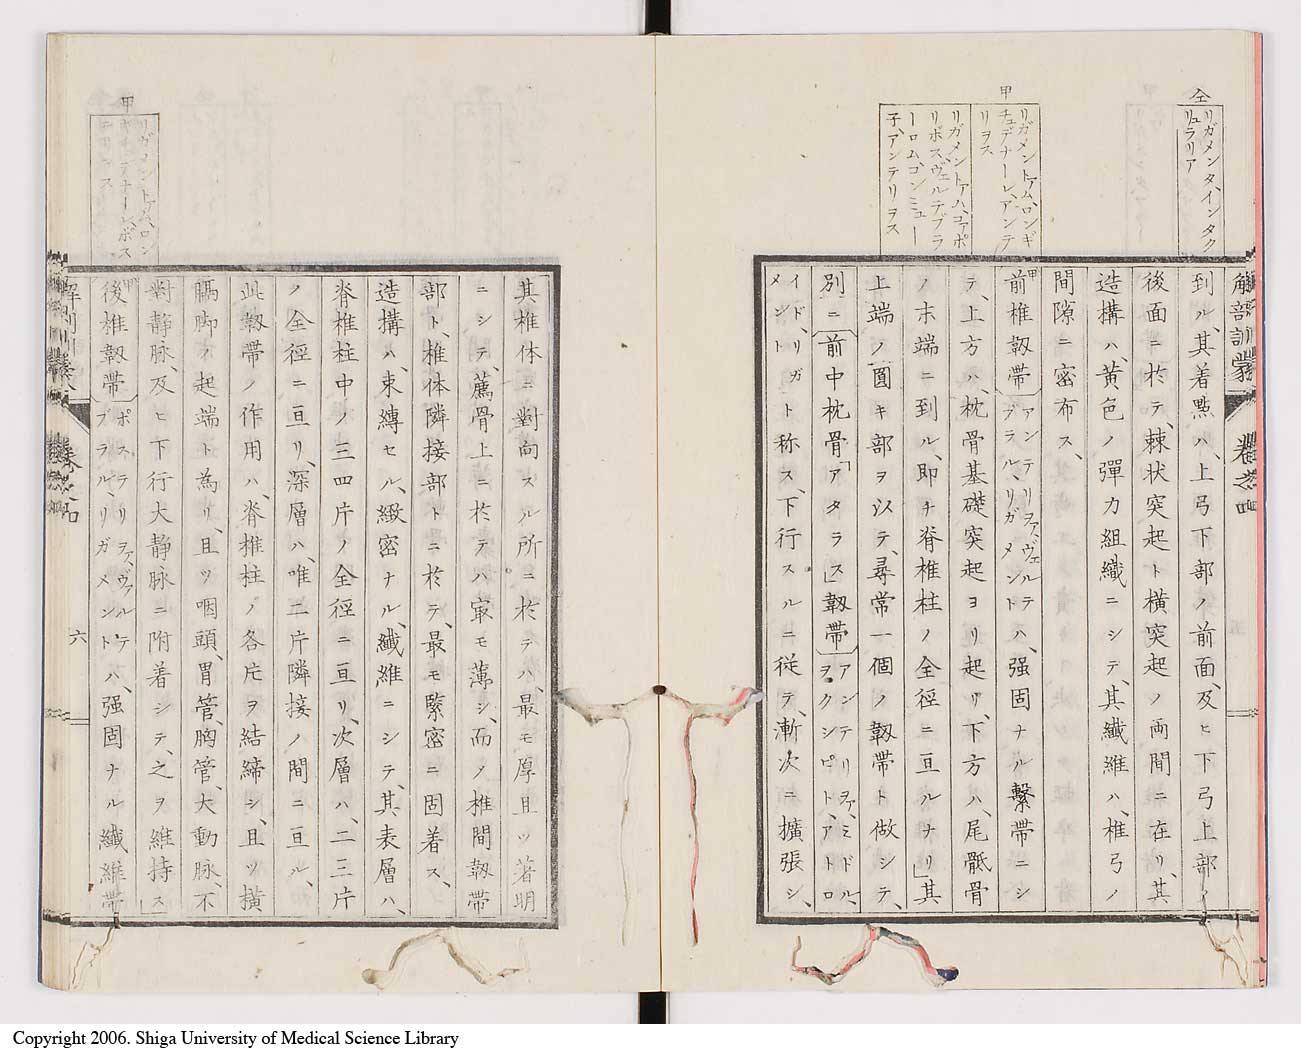 仝
リガメンタ、インタク
リュラリア
甲
リガメントアム、ロンギ
チュデナーレ、アンテ
リヲス
リガメントアハ、コアポ
リポス、ヴェルテブラ
ーロム、ゴンミュー
子、アンテリヲス
解剖訓蒙
卷之四
到ル、其着點ハ、上弓下部ノ前面、及ヒ下弓上部ノ
後面ニ於テ、棘状突起ト横突起ノ両間ニ在リ、其
造構ハ、黄色ノ彈力組織ニシテ、其纖維ハ、椎弓ノ
間隙ニ密布ス、
甲前椎韌帯アンテリヲァ、ヴェルテ
ブラル、リガメントハ、强固ナル繫帯ニシ
テ、上方ハ、枕骨基礎突起ヨリ起リ、下方ハ、尾骶骨
ノ末端ニ到ル、即チ脊椎柱ノ全徑ニ亘ルナリ」其
上端ノ圓キ部ヲ以テ、尋常一個ノ韌帯ト做シテ、
別ニ前中枕骨「アタラス」韌帯アンテリヲァ、ミドル、
ヲクシピト、アトロ
イド、リガ
メントト称ス、下行スルニ従テ、漸次ニ擴張シ、
其椎体ニ對向スル所ニ於テハ、最モ厚且ツ著明
ニシテ、薦骨上ニ於テハ㝡モ薄シ、而ノ椎間韌帯
部ト、椎体隣接部トニ於テ、最モ緊密ニ固着ス、
造構ハ、束縛セル、緻密ナル、纖維ニシテ、其表層ハ、
脊椎柱中ノ三四片ノ全徑ニ亘リ、次層ハ、二三片
ノ全徑ニ亘リ、深層ハ、唯二片隣接ノ間ニ亘ル、
此韌帯ノ作用ハ、脊椎柱ノ各片ヲ結締シ、且ツ横
膈脚ノ起端ト為リ、且ツ咽頭、胃管、胸管、大動脉、不
對静脉、及ヒ下行大静脉ニ附着シテ、之ヲ維持ス」
甲後椎韌帯ポステリヲァ、ヴァルテ
ブラル、リガメントハ、强固ナル纖維帯
甲
リガメントアム、ロン
ギチュデナーレ、ポス
テリンス
解剖訓蒙
卷之四
六
Copyright 2006. Shiga University of Medical Science Library